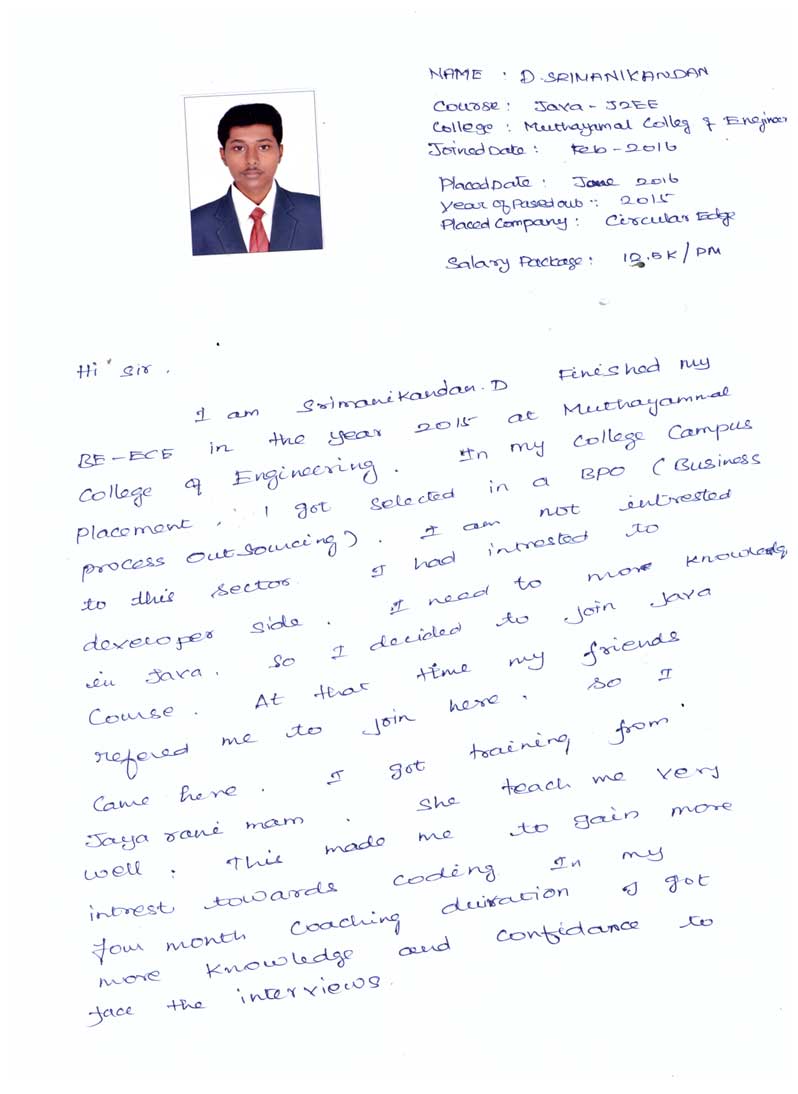 NAME : D.SRIMANIKANDAN
Course : Java - J2EE
College : Muthayamal Colleg of Enginer
Joined Date : Feb - 2016
Placed Date : June 2016
Year of Pased out : 2015
Placed Company : Circular Edge
Salary Package : 12.5K/PM
Hi Sir,
I am Srimanikandan.D Finished my
BE-ECE in the year 2015 at Muthayammal
College of Engineering. In my College Campus
Placement, I got selected in a BPO (Business
process outsourcing). I am not intrested
to this sector. I had intrested to
developer side. I need to more knowledg
in Java. So I decided to join Java
Course. At that time my friends
refered me to join here. So I
Came here. I got training from
Jaya rani mam. She teach me very
well. This made me to gain more
intrest towards coding In my
four month coaching duiration I got
more knowledge and confidance to
face the interviews.